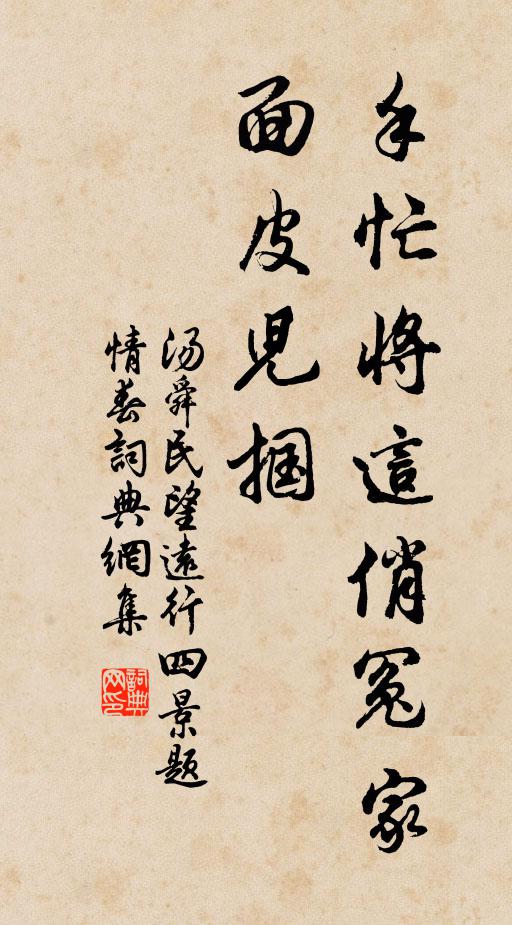 手忙將這俏冤家
面皮兒摑
湯舜民望遠行四景題
情春詞典網集
詞典網印